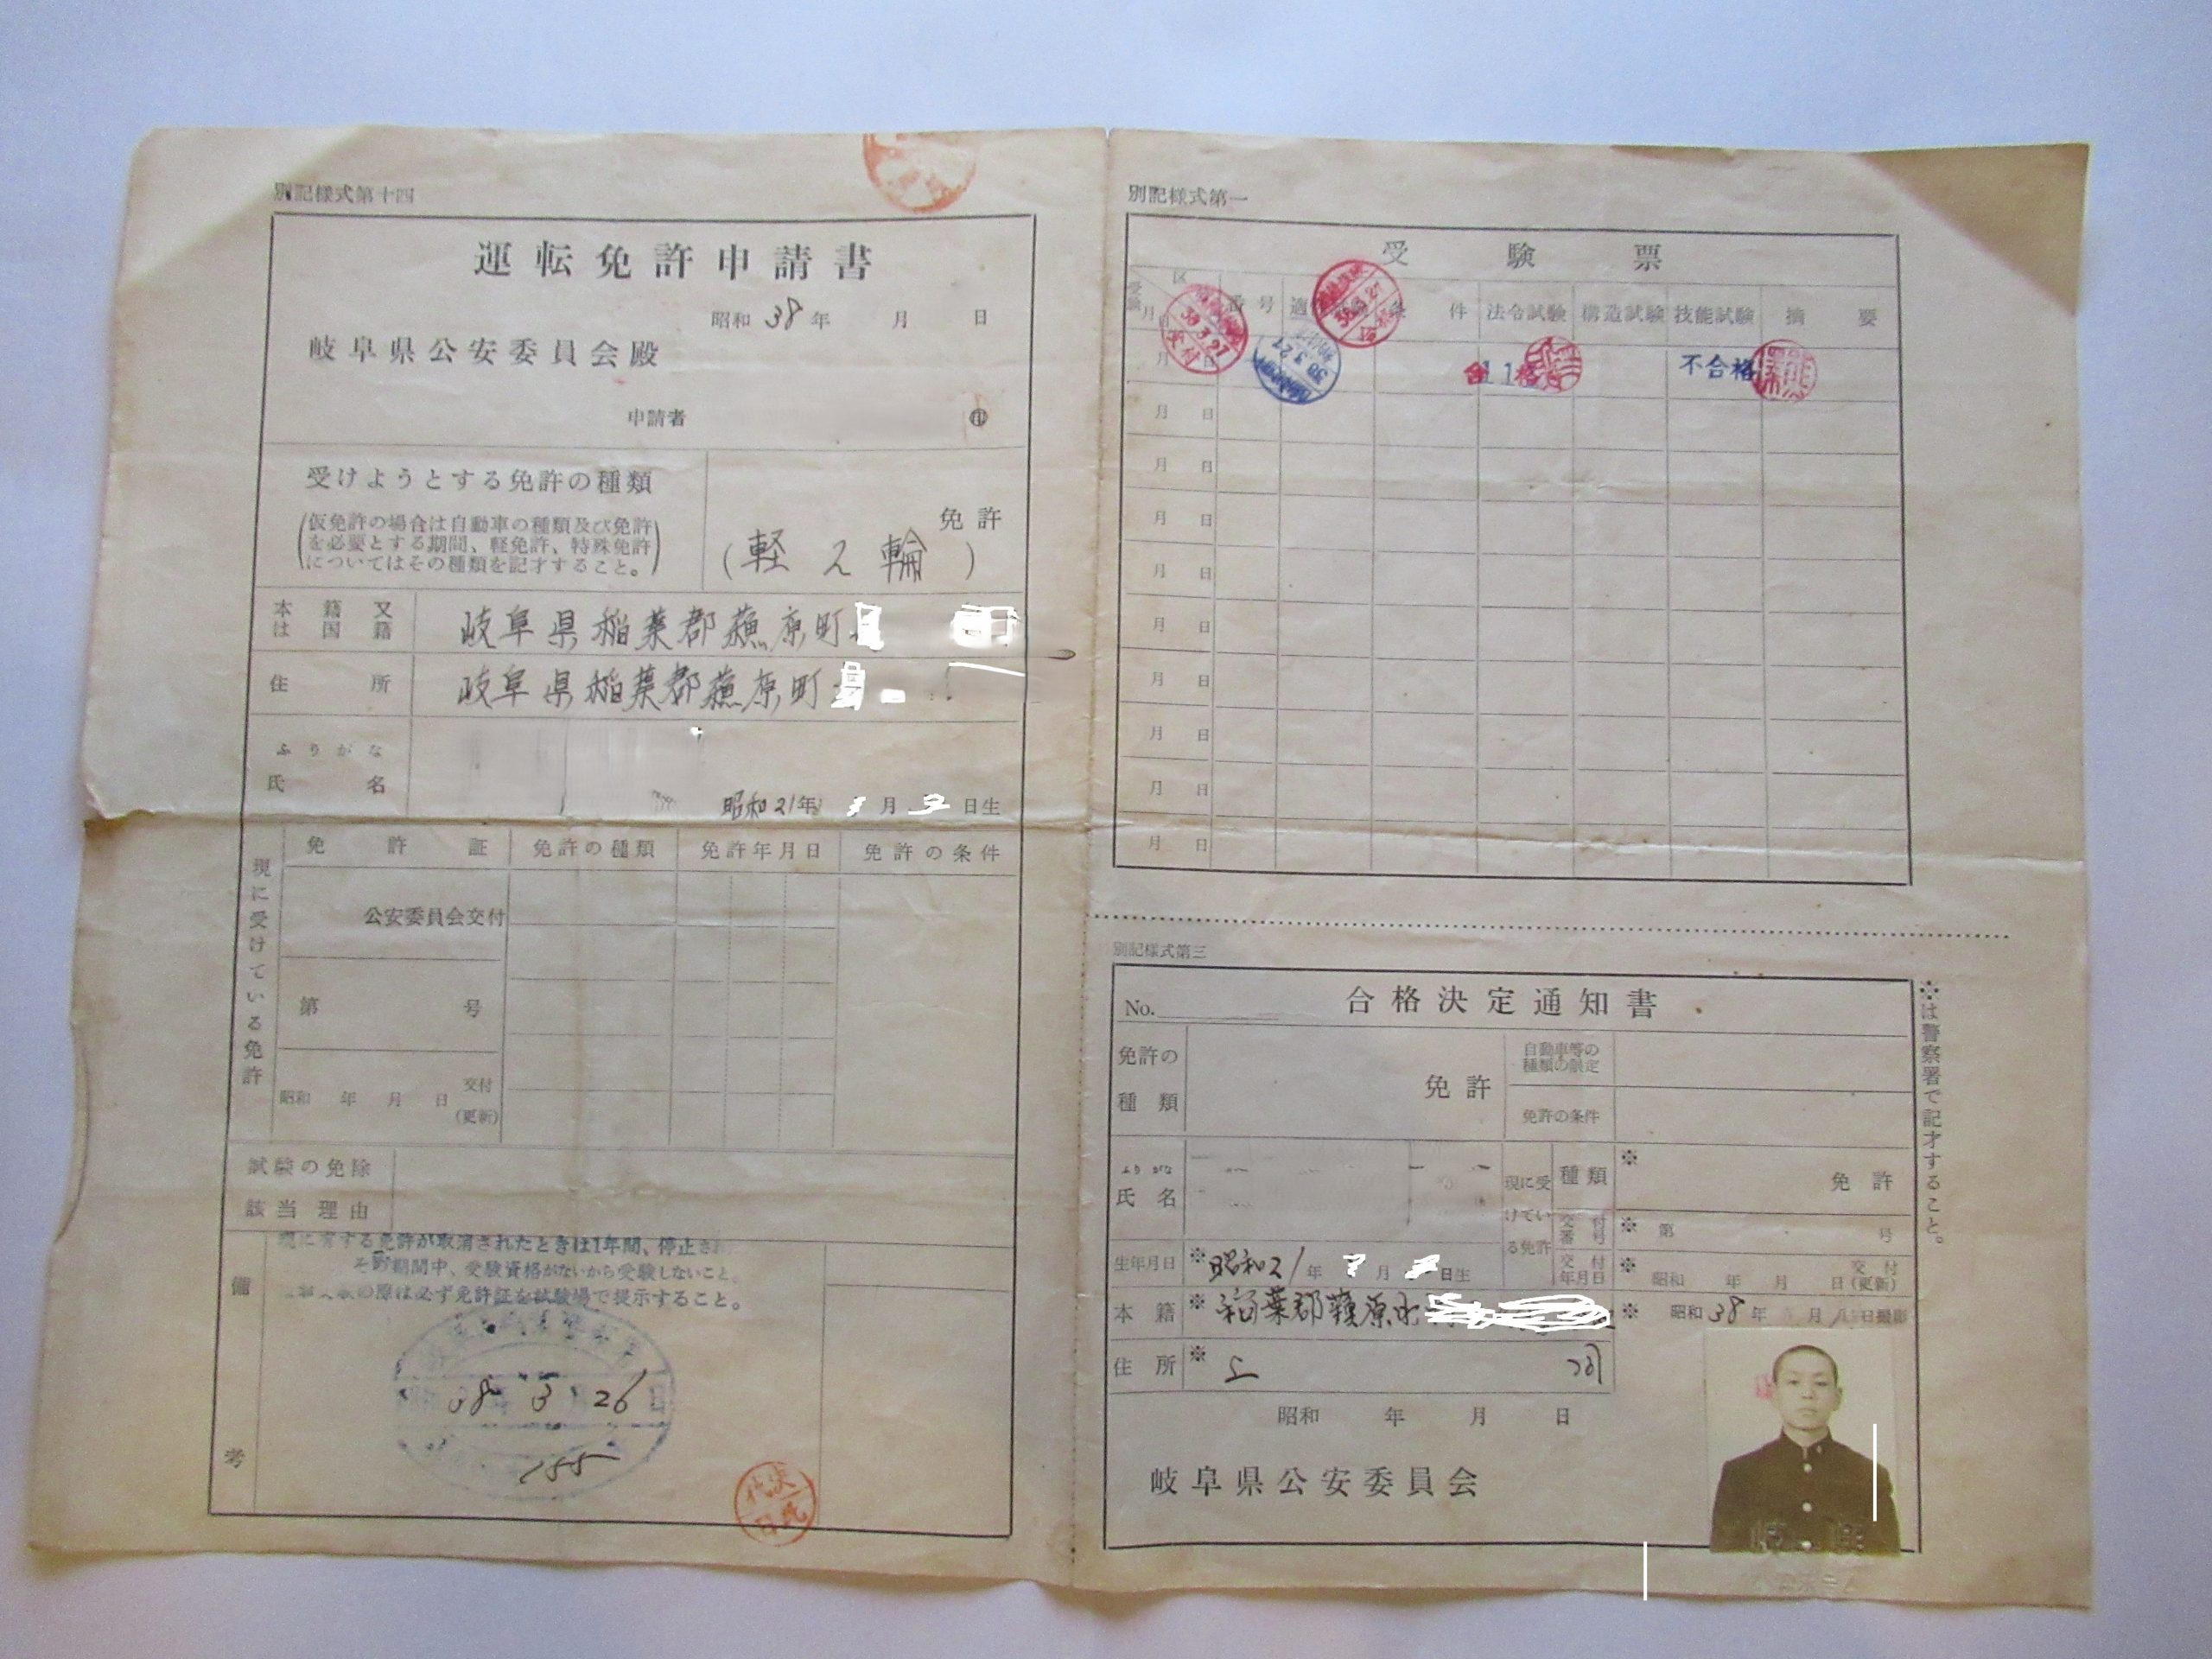 別記様式第十四
運転免許申請書
昭和 38 年 月 日
岐阜県公安委員会殿
申請者 ㊞
受けようとする免許の種類
(仮免許の場合は自動車の種類及び免許
を必要とする期間、軽免許、特殊免許
についてはその種類を記才すること。)
免許
(軽二輪)
本籍又
は国籍
岐阜県稲葉郡蘓原町
住所
岐阜県稲葉郡蘓原町
ふりがな
氏名
昭和21年 月 日生
現に受けている免許
免許証 免許の種類 免許年月日 免許の条件
公安委員会交付
第 号
昭和 年 月 日 交付
(更新)
試験の免除
該当理由
備考
現に有する免許が取消されたときは1年間、停止され
その期間中、受験資格がないから受験しないこと。
の際は必ず免許証を試験場で提示すること。
38 3 26
155
別記様式第一
受験票
区
受験月日 番号 適 条件 法令試験 構造試験 技能試験 摘要
38.3.27
交付
38.3.27
38.3.27
月 日 合格 不合格
月 日
月 日
月 日
月 日
月 日
月 日
月 日
月 日
月 日
別記様式第三
No. 合格決定通知書
免許の
種類
免許
自動車等の
種類の限定
免許の条件
ふりがな
氏名
現に受
けてい
る免許
種類 ※ 免許
交付
番号 ※ 第 号
交付
年月日 ※ 昭和 年 月 日 交付
(更新)
生年月日 ※ 昭和21年 月 日生
本籍 ※ 稲葉郡蘓原
※ 昭和38年 月 日撮影
住所 ※ 仝 同
昭和 年 月 日
岐阜県公安委員会
※は警察署で記才すること。